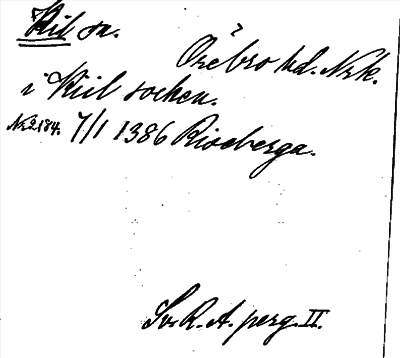 Kil sn.
Örebro hd. Nrk.
i Kiil sochen.
Nr 2184. 7/1 1386 Riseberga.
Sv. R. A. perg. II.